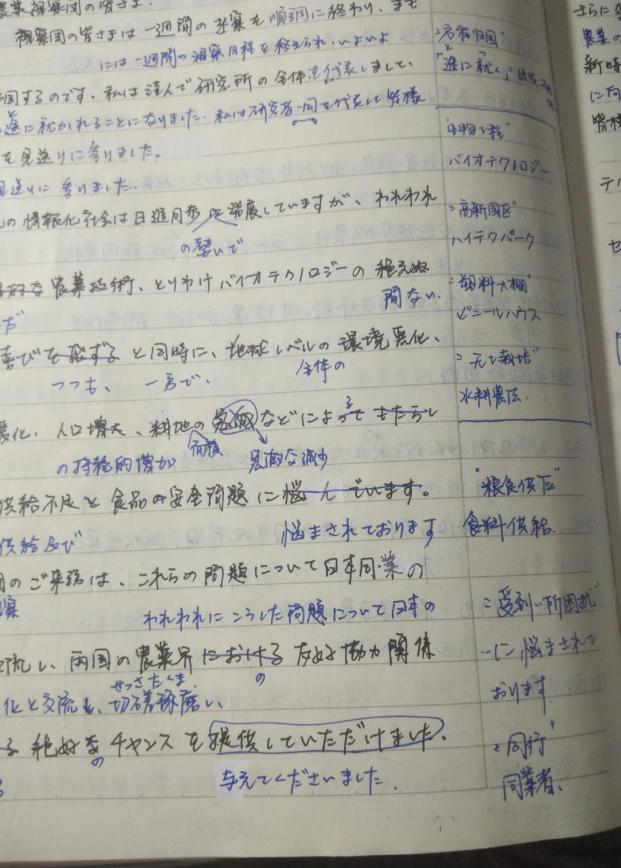 農業視察団の皆さま.
視察団の皆さまは一週間の視察を順調に終わり、まも
には一週間の視察日程を終えられ、いよいよ
帰国するのです。私は謹んで研究所の全体を代表しまして、
途に就かれることになりました。私は研究者一同を代表して皆様
を見送りに参りました。
見送りに参りました.
の情報化社会は日進月歩に発展していますが、われわれ
の勢いで
な農業技術、とりわけバイオテクノロジーの絶えぬ
間ない.
喜びを感ずると同時に、地球レベルの環境悪化、
つつも、一方で、全体の
悪化、人口増大、耕地の急減などによってまたらし
の持続的増加 面積 急激な減少
供給不足と食品の安全問題に悩んでいます。
供給及び 悩まされております
のご来訪は、これらの問題について日本同業の
察 われわれにこうした問題について日本の
交流し、両国の農業界における友好協力関係
の
化と交流も、切磋琢磨し、
せっさたくま
る絶好なチャンスを提供していただけました.
の
与えてくださいました.
"启程归国"
"途に就く"
"生物工程"
バイオテクノロジー
"高新园区"
ハイテクパーク
"塑料大棚"
ビニールハウス
"无土栽培"
水耕農法.
"粮食供应"
食料供給.
"受到…所困扰"
…に悩まされて
おります.
"同行"
同業者、
さらに
農業の
新時
に向
皆様